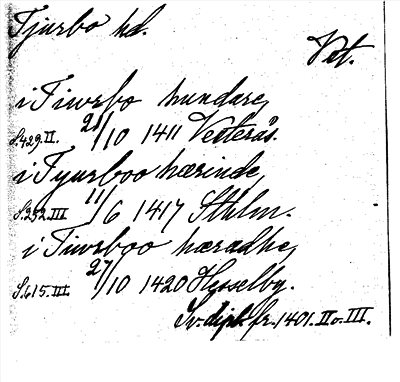 Tjurbo hd.
Vst.
i Tiwrbo hundare,
S. 429. II. 21/10 1411 Västerås.
i Tyurboo hærinde,
S. 252. III 11/6 1417 Sthlm.
i Tiwrboo hæradhe,
S. 615. III. 27/10 1420 Hæsselby.
Sv. dipl. fr. 1401. II o. III.